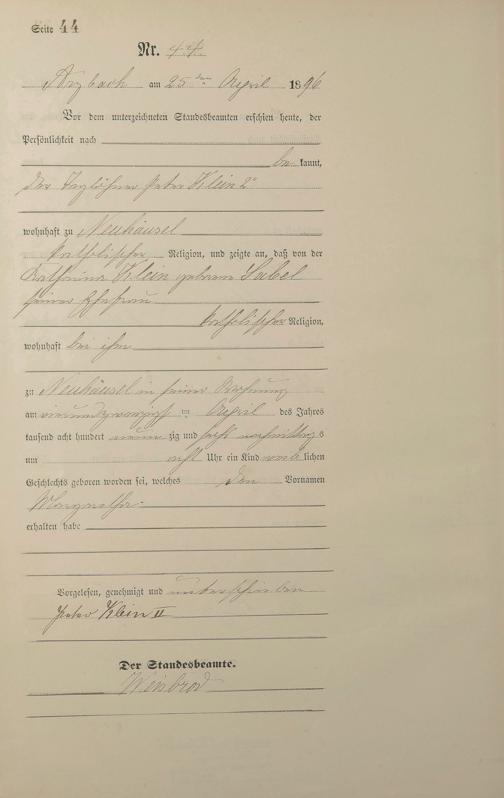 Seite 44
Nr. 44
Arzbach am 25 ten April 1896
Vor dem unterzeichneten Standesbeamten erschien heute, der
Persönlichkeit nach
be kannt,
der Taglöhner Peter Klein 2r
wohnhaft zu Neuhäusel
katholischer Religion, und zeigte an, daß von der
Katharina Klein geborene Sabel
seiner Ehefrau
katholischer Religion,
wohnhaft bei ihm
zu Neuhäusel in seiner Wohnung
am vierundzwanzigsten April des Jahres
tausend acht hundert neun zig und sechs nachmittags
um acht Uhr ein Kind weib lichen
Geschlechts geboren worden sei, welches den Vornamen
Margaretha
erhalten habe
Vorgelesen, genehmigt und unterschrieben
Peter Klein II
Der Standesbeamte.
Weinbrod